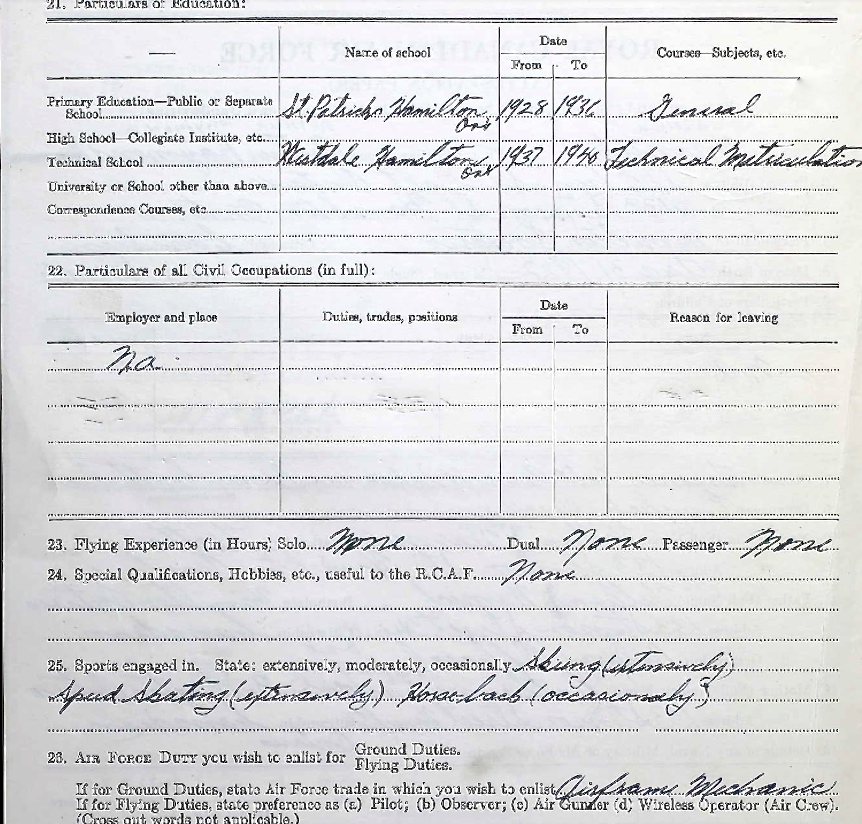 21. Particulars of Education:
Name of school Date Courses—Subjects, etc.
From To
Primary Education—Public or Separate
School St. Patricks Hamilton Ont 1928 1936 General
High School—Collegiate Institute, etc.
Technical School Westdale Hamilton Ont 1937 1940 Technical Matriculation
University or School other than above
Correspondence Courses, etc.
22. Particulars of all Civil Occupations (in full):
Employer and place Duties, trades, positions Date Reason for leaving
From To
Na.
23. Flying Experience (in Hours) Solo None Dual None Passenger None
24. Special Qualifications, Hobbies, etc., useful to the R.C.A.F. None
25. Sports engaged in. State: extensively, moderately, occasionally Skiing (extensively)
Speed Skating (extensively) Horseback (occasionally)
26. AIR FORCE DUTY you wish to enlist for Ground Duties.
Flying Duties.
If for Ground Duties, state Air Force trade in which you wish to enlist Airframe Mechanic
If for Flying Duties, state preference as (a) Pilot; (b) Observer; (c) Air Gunner (d) Wireless Operator (Air Crew).
(Cross out words not applicable.)